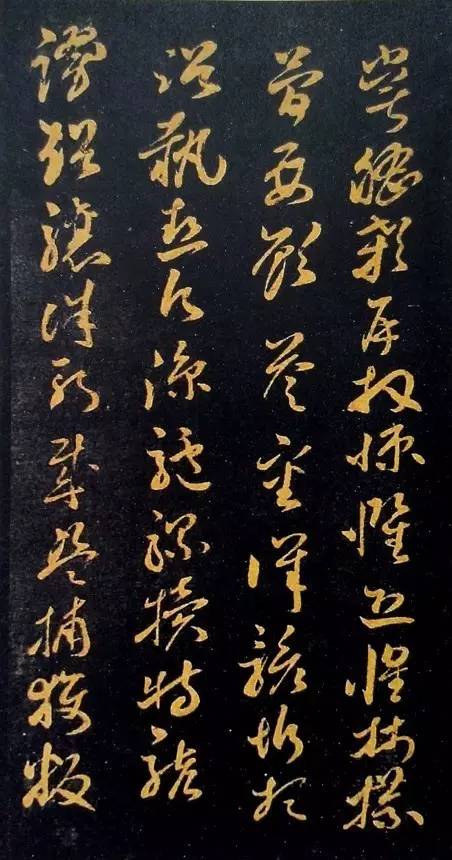 嘗稽顙再拜悚懼恐惶牋牒
簡要顧答審詳骸垢想
浴執熱願涼驢騾犢特駭
躍超驤誅斬賊盜捕獲叛